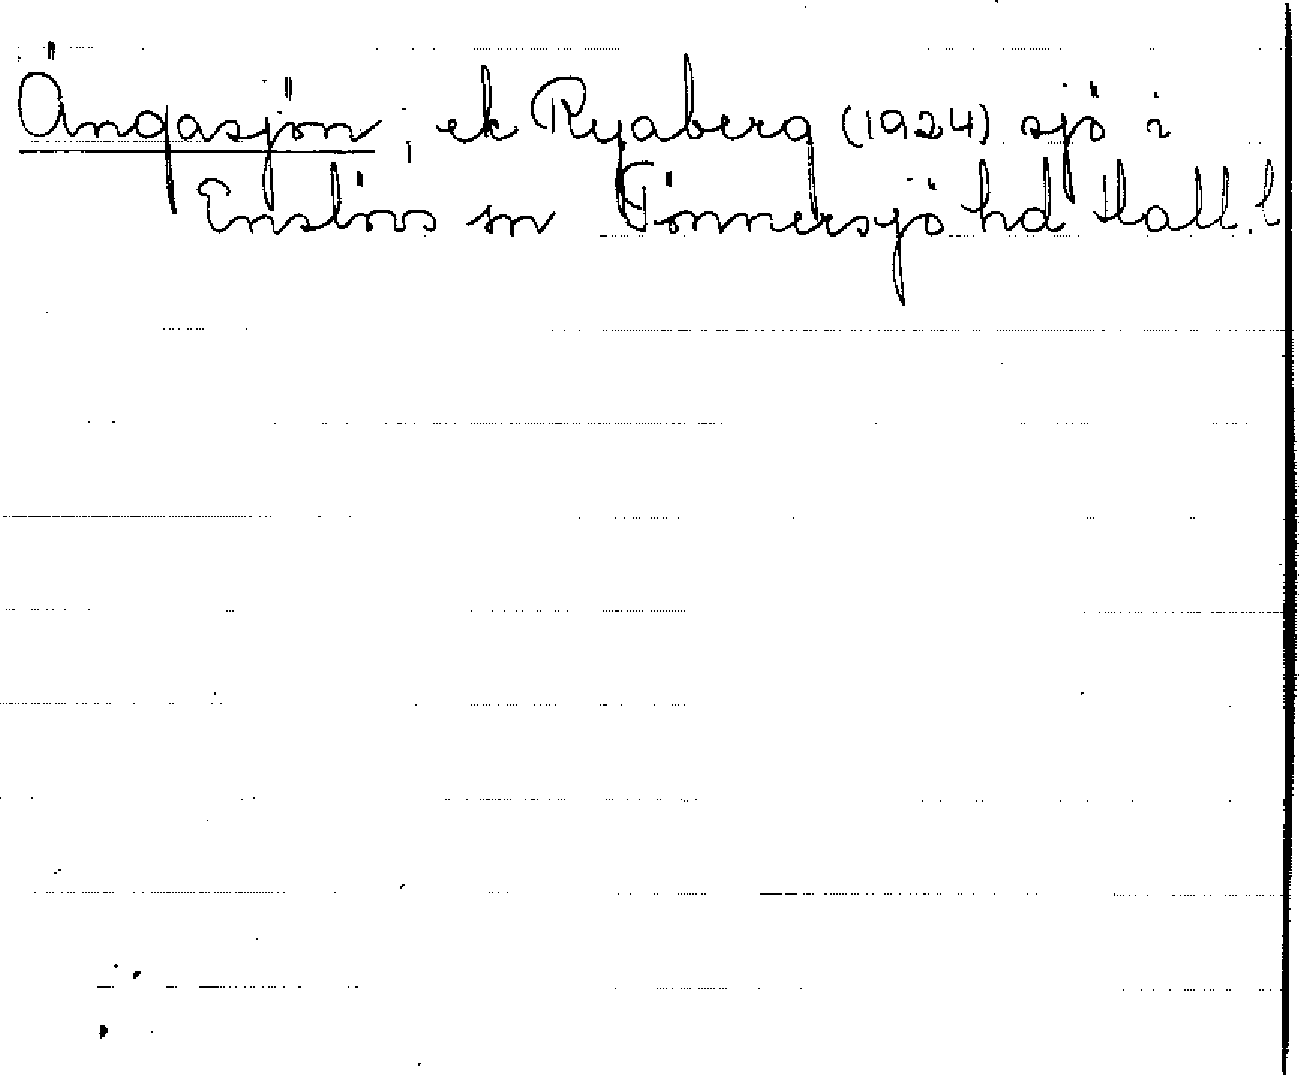 Ängasjön, ek Ryaberg (1924) sjö i
Enslövs sn Tönnersjö hd Hall.l